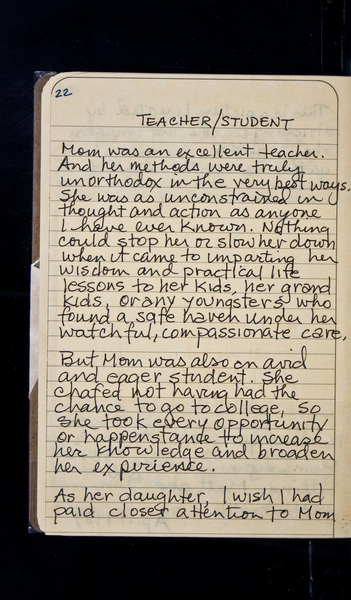 22
TEACHER/STUDENT
Mom was an excellent teacher.
And her methods were truly
unorthodox in the very best ways.
She was as unconstrained in
thought and action as anyone
I have ever known. Nothing
could stop her or slow her down
when it came to imparting her
wisdom and practical life
lessons to her kids, her grand
kids, or any youngsters who
found a safe haven under her
watchful, compassionate care.
But Mom was also an avid
and eager student. She
chafed not having had the
chance to go to college, so
she took every opportunity
or happenstance to increase
her knowledge and broaden
her experience.
As her daughter, I wish I had
paid closer attention to Mom